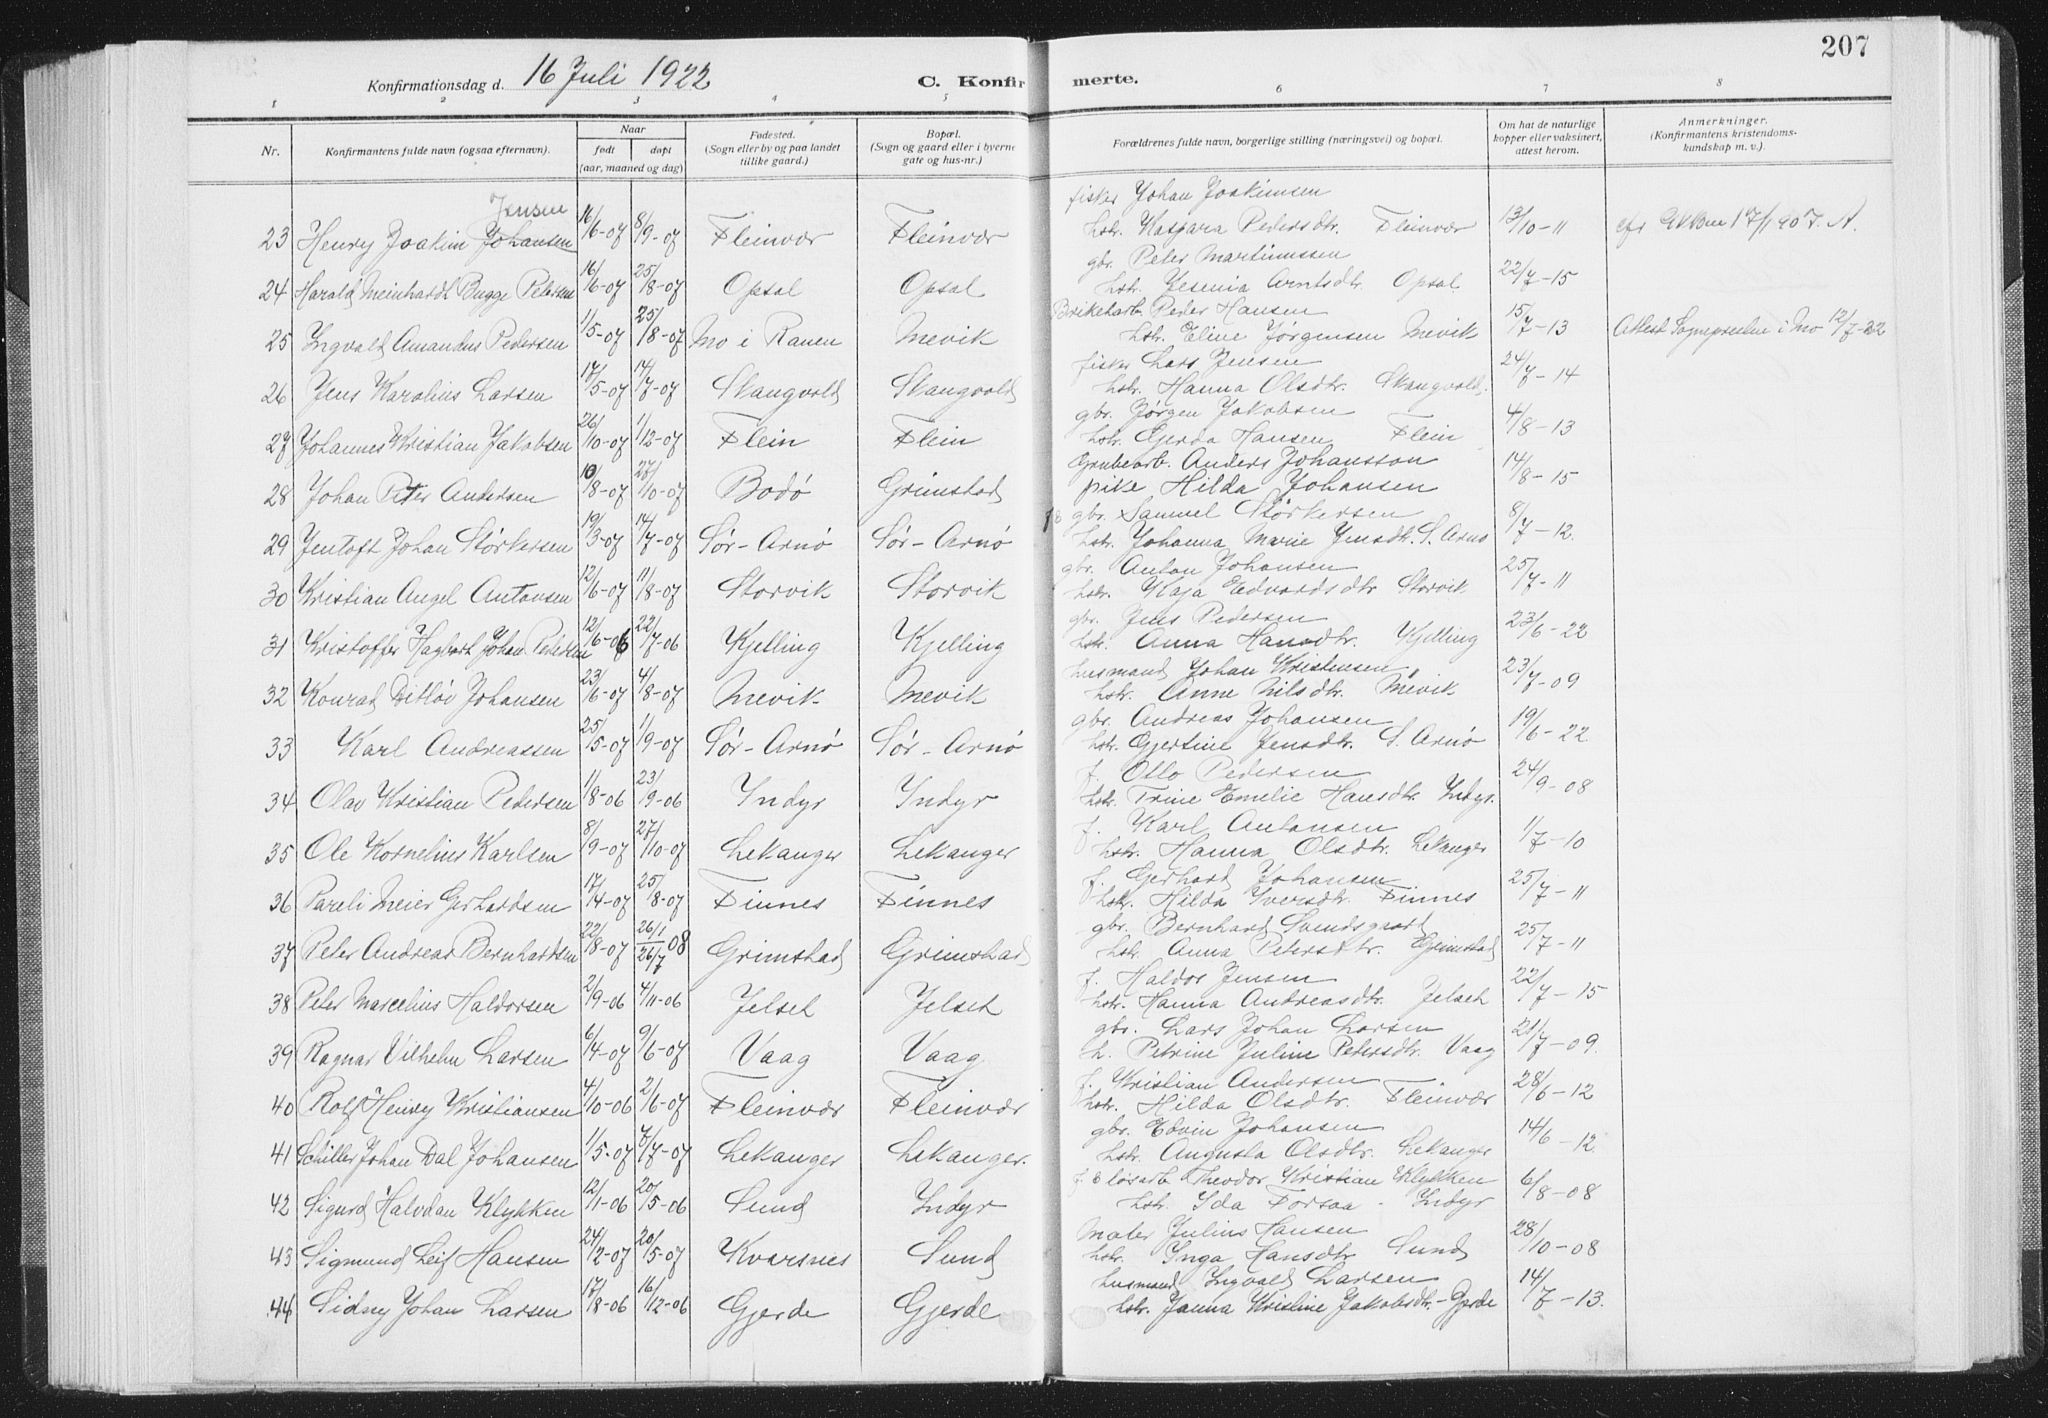 207
Konfirmationsdag d. 16 Juli 1922 C. Konfir merte.
1 2 3 4 5 6 7 8
Nr. Konfirmantens fulde navn (ogsaa efternavn). Naar født døpt (aar, maaned og dag) Fødested. (Sogn eller by og paa landet tillike gaard.) Bopæl. (Sogn og gaard eller i byerne gate og hus-nr.) Forældrenes fulde navn, borgerlige stilling (næringsvei) og bopæl. Om hat de naturlige kopper eller vaksinert, attest herom. Anmerkninger. (Konfirmantens kristendomskundskap m. v.).
Jensen fisker Johan Joakimsen
23 Henry Joakim Johansen 16/6-07 8/9-07 Fleinvær Fleinvær hstr. Kaspara Pedersdtr. Fleinvær 13/10-11
gbr. Peter Martinussen
24 Harald Meinhardt Bugge Petersen 16/6-07 25/8-07 Opsal Opsal hstr. Jesenia Arntsdtr. Opsal 22/7-15
Peder Hansen
25 Ingvald Amandus Pedersen 1/5-07 25/8-07 Mo i Ranen Mevik hstr. Eline Jørgensen Mevik 15/7-13 Attest Sognepresten i Mo 12/7-22
fisker Lars Jensen
26 Jens Karolius Larsen 17/5-07 14/7-07 Skaugvold Skaugvold hstr. Hanna Olsdtr. Skaugvold. 24/7-14
gbr. Jørgen Jakobsen
27 Johannes Kristian Jakobsen 26/10-07 1/12-07 Flein Flein hstr. Gjerda Hansen Flein 4/8-13
Grubearb. Anders Johansson
28 Johan Peter Andersen 10/8-07 27/10-07 Bodø Grimstad pike Hilda Johansen 14/8-15
gbr. Samuel Størkersen
29 Jentoft Johan Størkersen 19/3-07 14/7-07 Sør-Arnø Sør-Arnø hstr. Johanna Marie Jensdtr. S. Arnø 8/7-12.
gbr. Anton Johansen
30 Kristian Angel Antonsen 12/6-07 11/8-07 Storvik Storvik hstr. Kaja Edvardsdtr Storvik 25/7-11
gbr. Jens Pedersen
31 Kristoffer Hagbart Johan Pedersen 12/6-06 22/7-06 Kjelling Kjelling hstr. Anna Hansdtr. Kjelling 23/6-22
husmand Johan Kristensen
32 Konrad Ditløv Johansen 23/6-07 4/8-07 Mevik Mevik hstr. Anne Nilsdtr. Mevik 23/7-09
gbr. Andreas Johansen
33 Karl Andreassen 25/5-07 1/9-07 Sør-Arnø Sør-Arnø hstr. Gjertine Jensdtr. S. Arnø 19/6-22
f. Otto Pedersen
34 Olav Kristian Pedersen 1/8-06 23/9-06 Indyr Indyr hstr. Trine Emelie Hansdtr. Indyr. 24/9-08
f. Karl Antonsen
35 Ole Kornelius Karlsen 8/9-07 27/10-07 Lekanger Lekanger hstr. Hanna Olsdtr. Lekanger 1/7-10
f. Gerhard Johansen
36 Pareli Meier Gerhardsen 17/4-07 25/8-07 Finnes Finnes hstr. Hilda Iversdtr. Finnes 25/7-11
gbr. Bernhard Svendsgaard
37 Peter Andreas Bernhardsen 22/8-07 26/1 26/7 08 Grimstad Grimstad hstr. Anna Petersdtr. Grimstad 25/7-11
f. Haldor Jensen
38 Peter Marcelius Haldorsen 2/9-06 4/11-06 Jelset Jelset hstr. Hanna Andreasdtr. Jelset 22/7-15
gbr. Lars Johan Larsen
39 Ragnar Vilhelm Larsen 6/4-07 9/6-07 Vaag Vaag h. Petrine Juline Petersdtr. Vaag 21/7-09.
f. Kristian Andersen
40 Rolf Henry Kristiansen 4/10-06 2/6-07 Fleinvær Fleinvær hstr. Hilda Olsdtr. Fleinvær 28/6-12
gbr. Edvin Johansen
41 Schiller Johan Dal Johansen 1/5-07 7/7-07 Lekanger Lekanger. hstr. Augusta Olsdtr. Lekanger 14/6-12.
f. & løsarb. Theodor Kristian Klykken
42 Sigurd Halvdan Klykken 12/1-06 20/5-06 Sund Indyr hstr. Ida Forsaa - Indyr 6/8-08
Maler Julius Hansen
43 Sigmund Leif Hansen 24/2-07 20/5-07 Kvarsnes Sund hstr. Inga Hansdtr Sund 28/10-08
husmand Ingvald Larsen
44 Sidney Johan Larsen 17/8-06 16/12-06 Gjerde Gjerde hstr. Janna Kristine Jakobsdtr. - Gjerde 14/7-13.